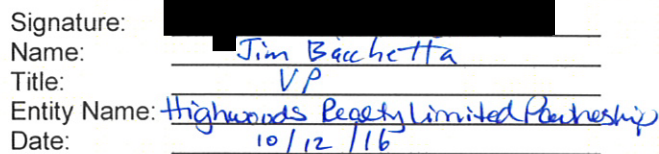 Signature:
Name: Jim Bacchetta
Title: VP
Entity Name: Highwoods Realty Limited Partnership
Date: 10/12/16